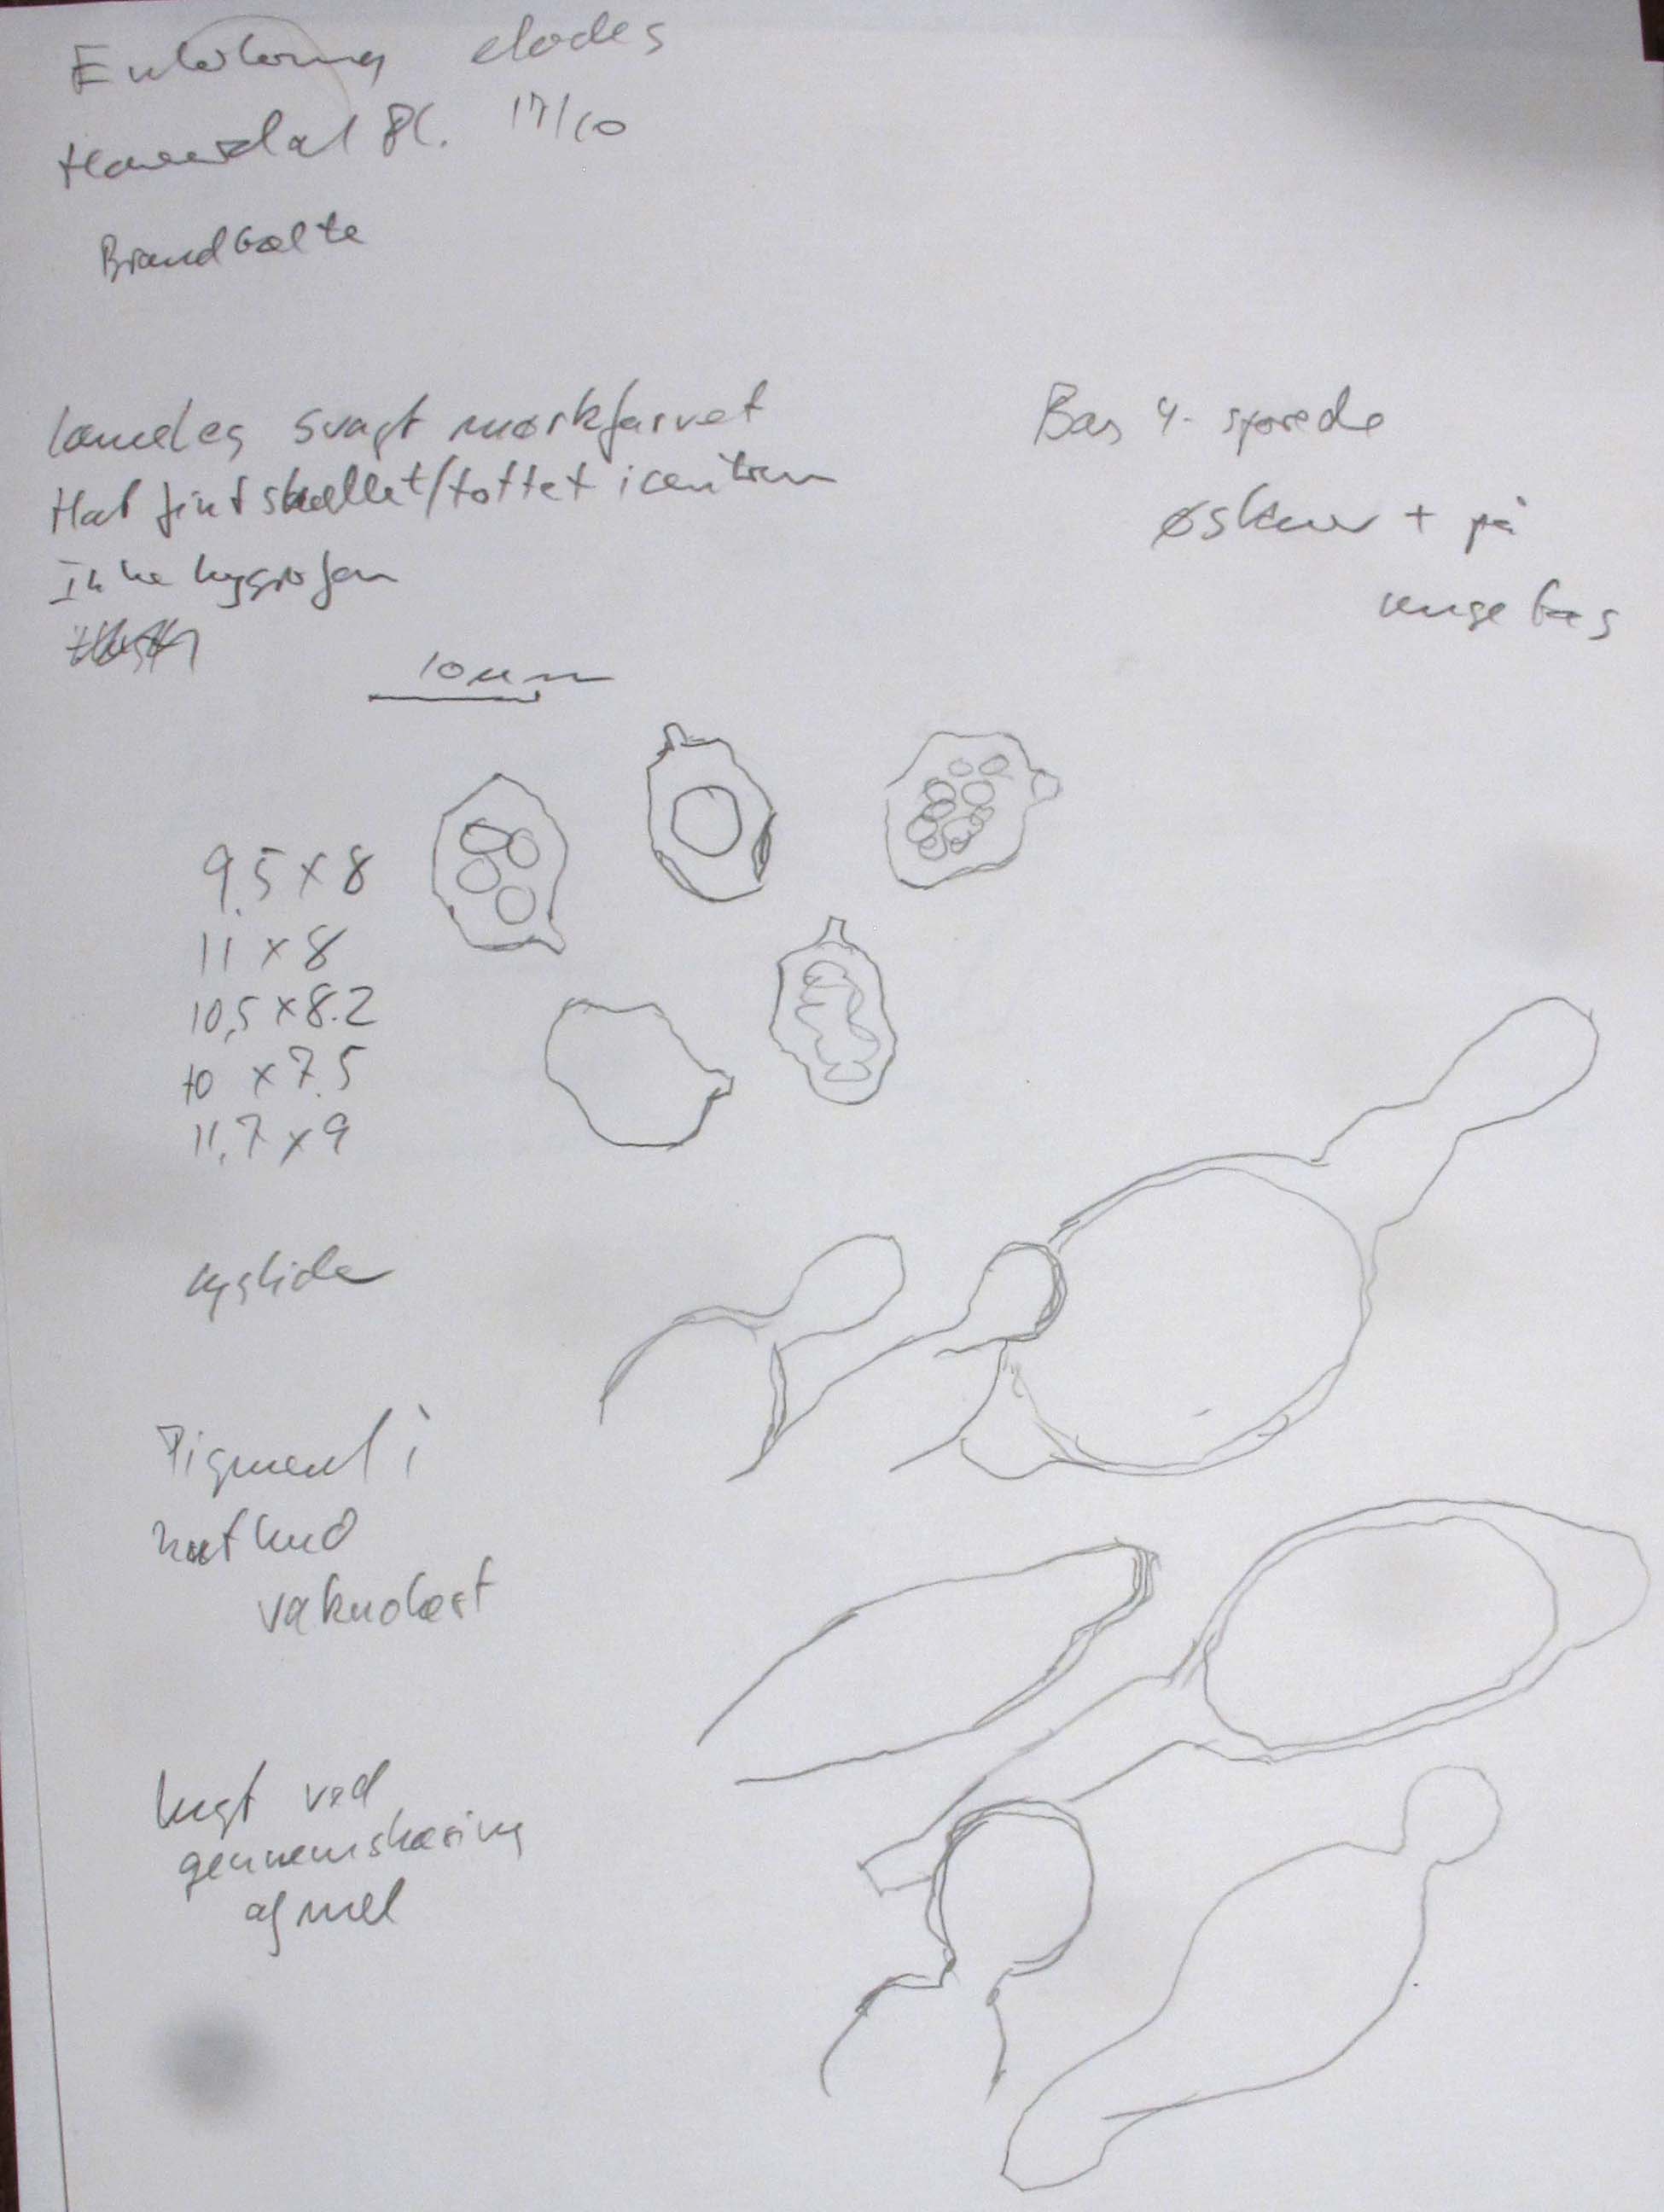 Entoloma elodes
Pl. 17/10
Brandbælte
lamelæg svagt mørkfarvet
Hat fint skællet/tottet i centrum
Ikke hygrofan
Bas 4-sporede
øskner + på
unge bas
10 µm
9.5 x 8
11 x 8
10,5 x 8.2
10 x 7.5
11.7 x 9
cystider
Pigment i
hathud
vakuolært
lugt ved
gennemskæring
af mel